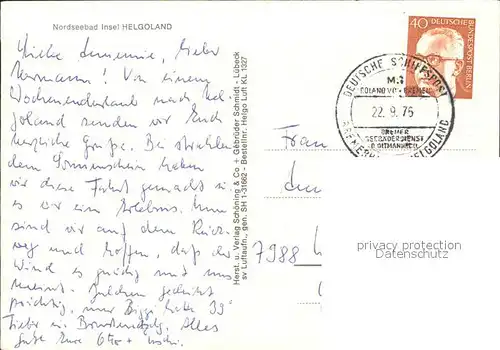 Nordseebad Insel HELGOLAND
Liebe Annemie, lieber
Hermann! Von einem
Wochenendurlaub nach Hel-
goland senden wir Euch
herzliche Grüße. Bei strahlen
dem Sonnenschein haben
wir diese Fahrt gemacht u.
es war ein Erlebnis. Nun
sind wir auf dem Rück-
weg und hoffen, daß der
Wind es gnädig mit uns
meint.
prächtig, nur Biggi hatte 39°
Fieber Alles
Gute Eure Otto +
Herst. u. Verlag Schöning & Co + Gebrüder Schmidt - Lübeck
sv Luftaufn., gen. SH 1-31662 - Bestellnr. Helgo Luft KL 1327
40 DEUTSCHE BUNDESPOST BERLIN
DEUTSCHE SCHIFFSPOST
M.S
ROLAND VON BREMEN
22. 9. 76
BREMER
SEEBÄDERDIENST
BREMERHAVEN HELGOLAND
Frau
7988
privacy protection
Datenschutz